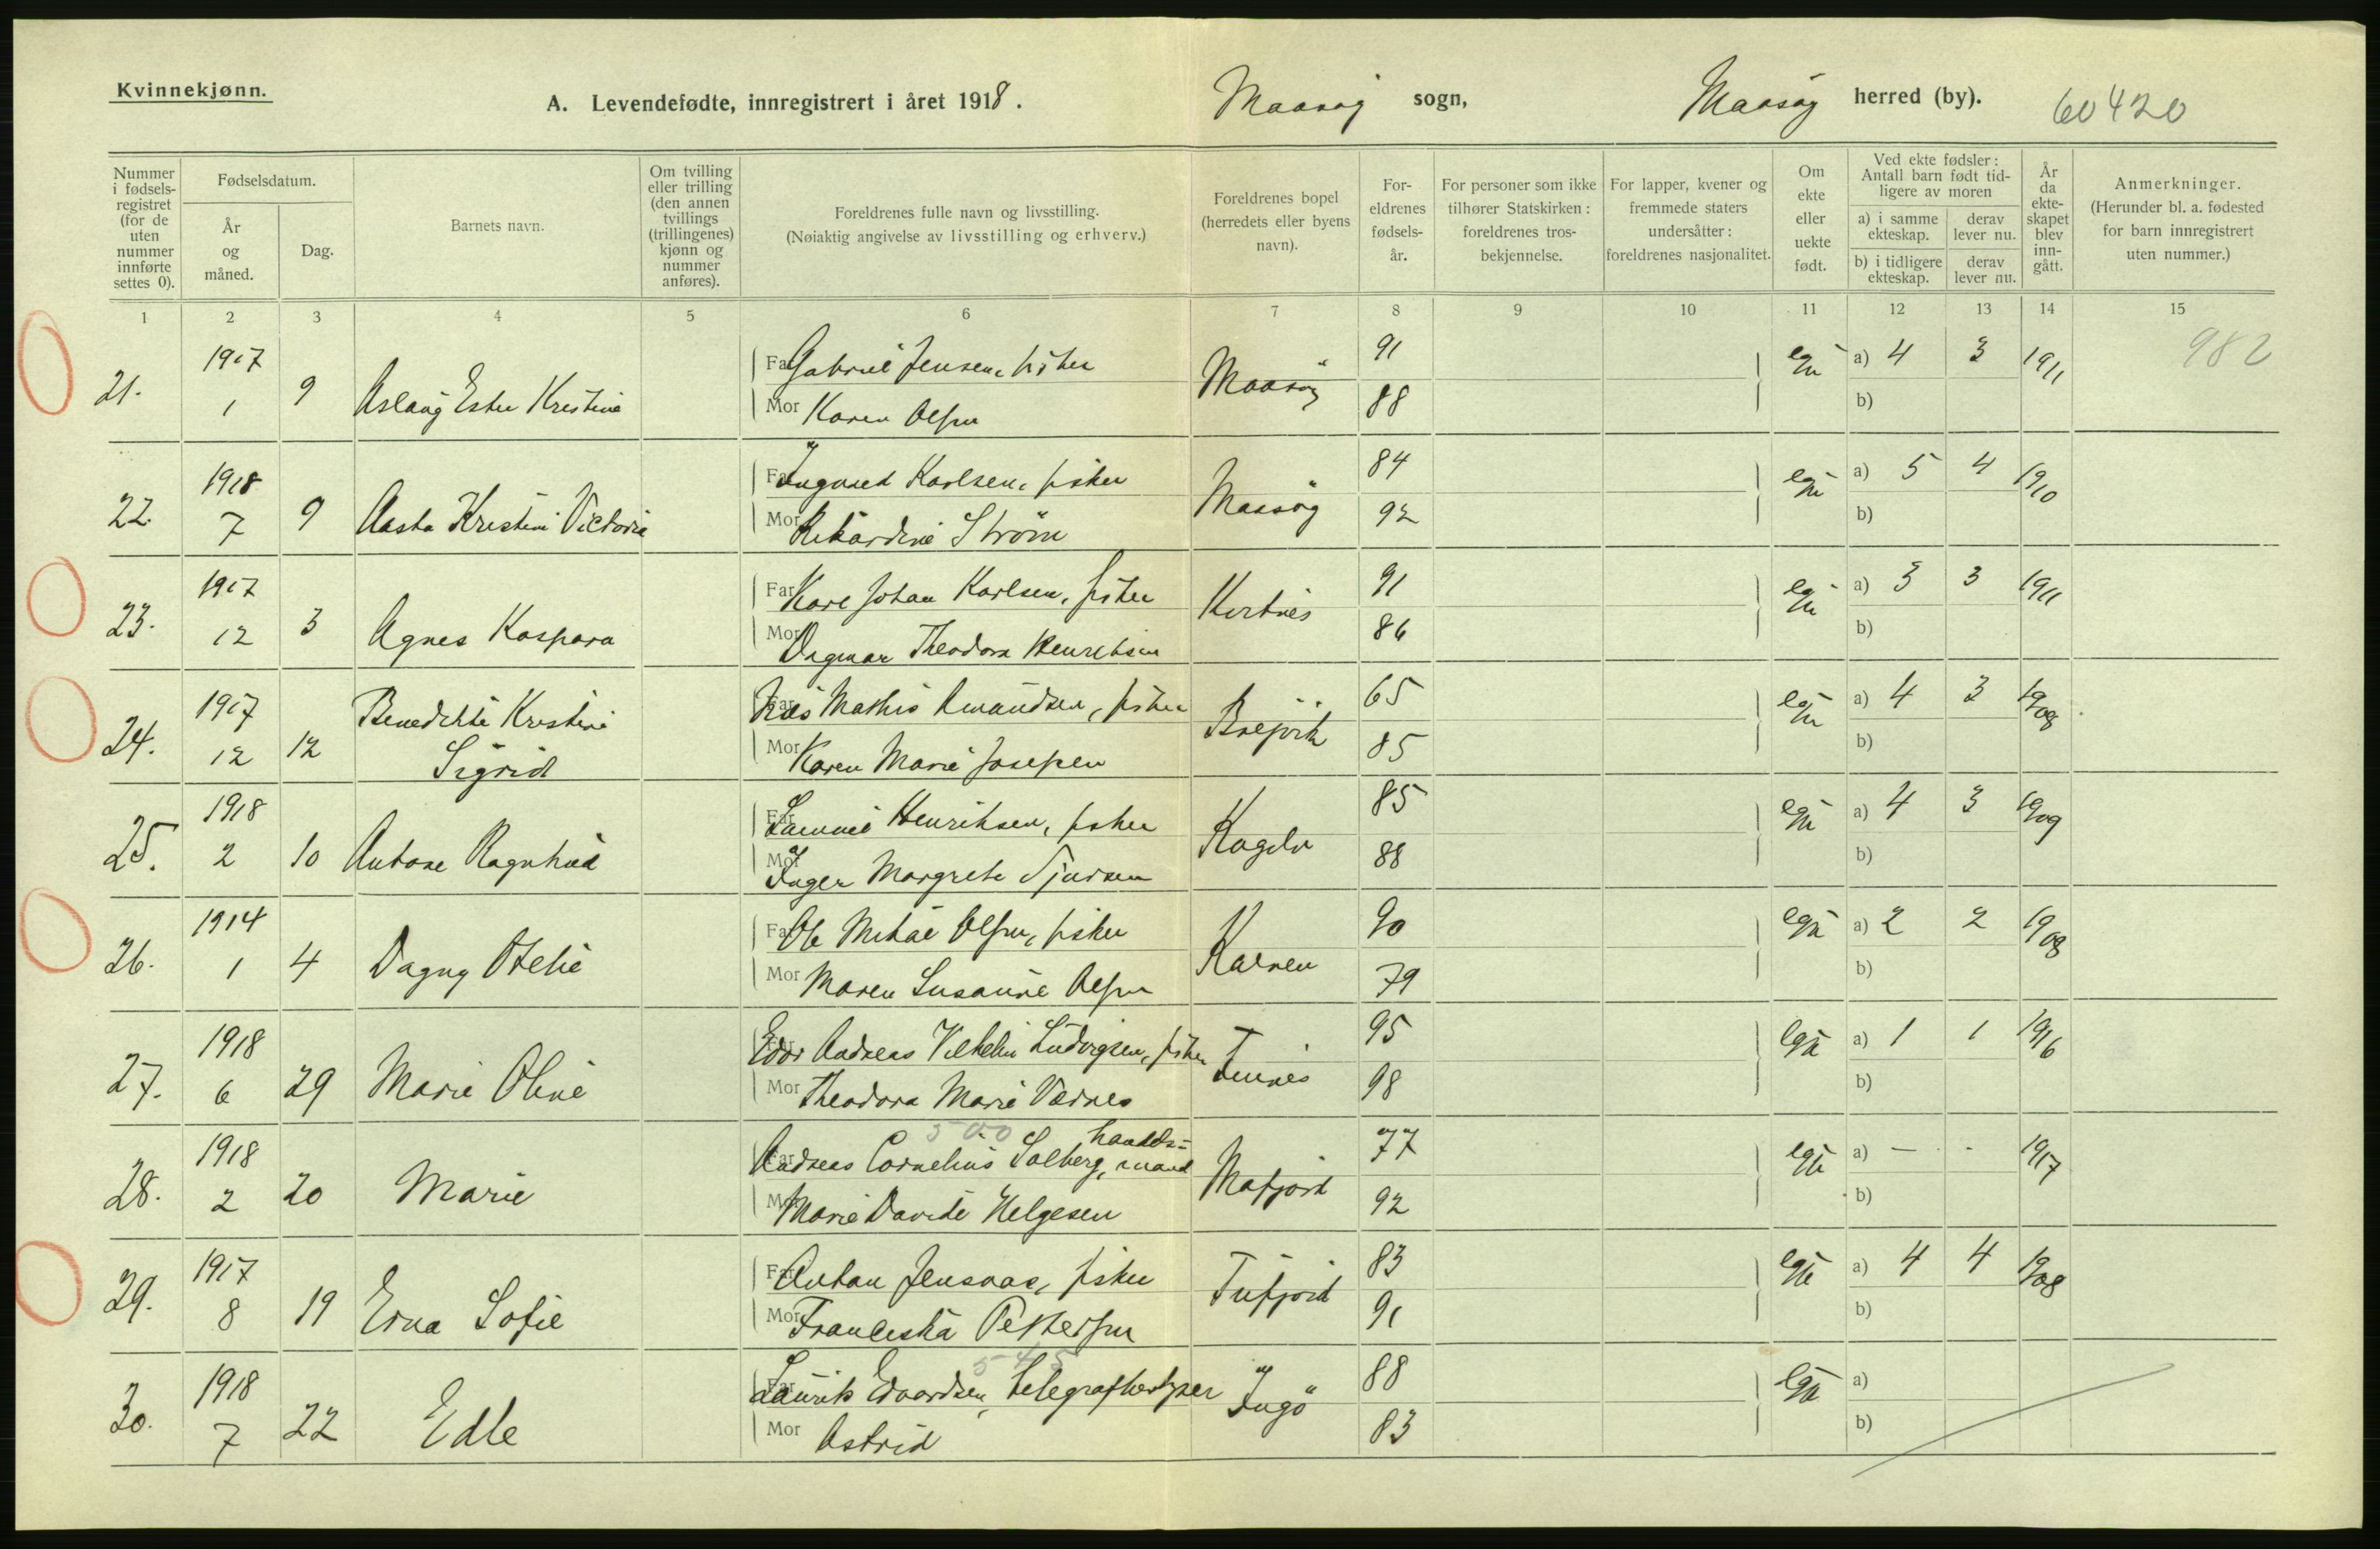 Kvinnekjønn.
A. Levendefødte, innregistrert i året 1918.
Maasøy sogn,
Maasøy herred (by).
60420
Nummer i fødselsregistret (for de uten nummer innførte settes 0).
Fødselsdatum.
År og måned.
Dag.
Barnets navn.
Om tvilling eller trilling (den annen tvillings (trillingenes) kjønn og nummer anføres).
Foreldrenes fulle navn og livsstilling.
(Nøiaktig angivelse av livsstilling og erhverv.)
Foreldrenes bopel (herredets eller byens navn).
Foreldrenes fødselsår.
For personer som ikke tilhører Statskirken: foreldrenes trosbekjennelse.
For lapper, kvener og fremmede staters undersåtter: foreldrenes nasjonalitet.
Om ekte eller uekte født.
Ved ekte fødsler: Antall barn født tidligere av moren
a) i samme ekteskap.
derav lever nu.
b) i tidligere ekteskap.
derav lever nu.
År da ekteskapet blev inngått.
Anmerkninger.
(Herunder bl. a. fødested for barn innregistrert uten nummer.)
1 2 3 4 5 6 7 8 9 10 11 12 13 14 15
21. 1917 1 9 Aslaug Ester Kristine
Far Gabriel Jensen, fisker Maasøy 91 a) 4 3 1911 982
Mor Karen Olsen 88 b)
22. 1918 7 9 Aasta Kristine Victoria
Far Ingvald Karlsen, fisker Maasøy 84 a) 5 4 1910
Mor Rikardine Strøm 92 b)
23. 1917 12 3 Agnes Kaspara
Far Karl Johan Karlsen, fisker 91 a) 3 3 1911
Mor Dagmar Theodora Henriksen 86 b)
24. 1917 12 12 Benedikte Kristine Sigrid
Far Mathis Amundsen, fisker 65 a) 4 3 1908
Mor Karen Marie Josepsen 85 b)
25. 1918 2 10 Antone Ragnhild
Far Samuel Henriksen, fisker 85 a) 4 3 1909
Mor Inger Margrete 88 b)
26. 1914 1 4 Dagny Otelie
Far Ole Mikal Olsen, fisker 90 a) 2 2 1908
Mor Maren Susanne Olsen 79 b)
27. 1918 6 29 Marie Oline
Far Andreas Vilhelm Ludvigsen, fisker 95 a) 1 1 1916
Mor Theodora Marie Værnes 98 b)
28. 1918 2 20 Marie
500
Far Andreas Cornelius Solberg, handelsmand Mafjord 77 a) – - 1917
Mor Marie Davide Helgesen 92 b)
29. 1917 8 19 Erna Sofie
Far Anton Jensvas, fisker Tufjord 83 a) 4 4 1908
Mor Franciska Pettersen 91 b)
30. 1918 7 22 Edle
545
Far Laurits Edvardsen, telegrafbestyrer Ingø 88 a)
Mor Astrid 83 b)